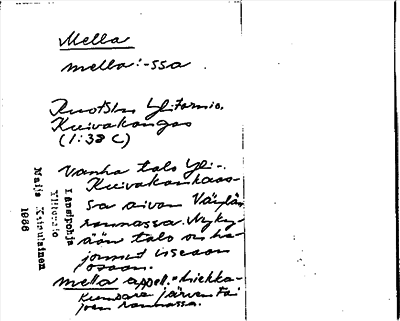 Mella
mella: -ssa
Ruotsin Ylitornio,
Kuivakangas
(1:38 C)
Vanha talo Yli-
Kuivakankaas-
sa aivan Väylän
rannassa. Nyky-
ään talo on ha-
jonnut useaan
osaan.
mella appell. = hiekka-
kumpare järven tai
joen rannassa.
Länsipohja
Ylitornio
Maija
1966